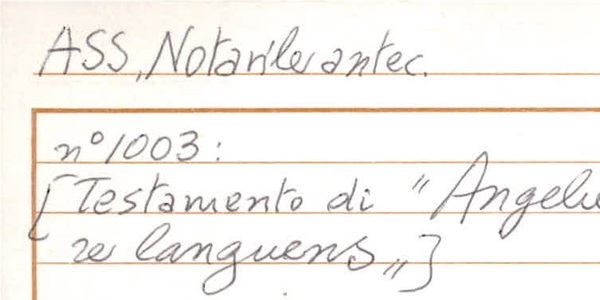 ASS, Notarile antec.
n° 1003:
[Testamento di "Angelu
re languens"]